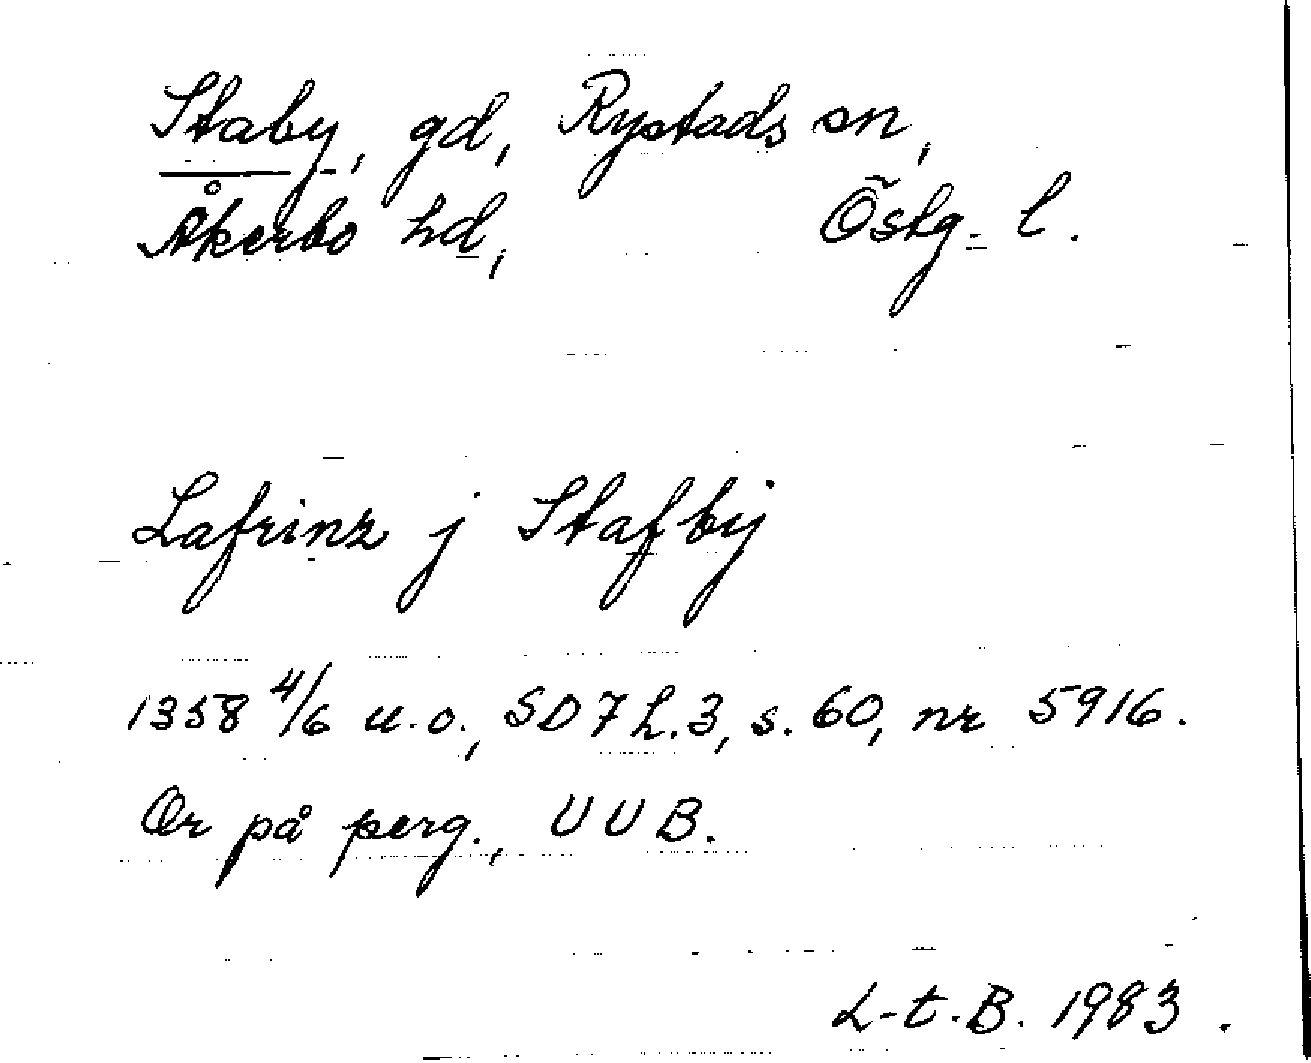 Staby, gd, Rystads sn,
Åkerbo hd, Östg. l.
Lafrinz j Stafby
1358 4/6 u.o., SD 7 h.3, s. 60, nr 5916.
Or på perg., UUB.
L-t.B. 1983.